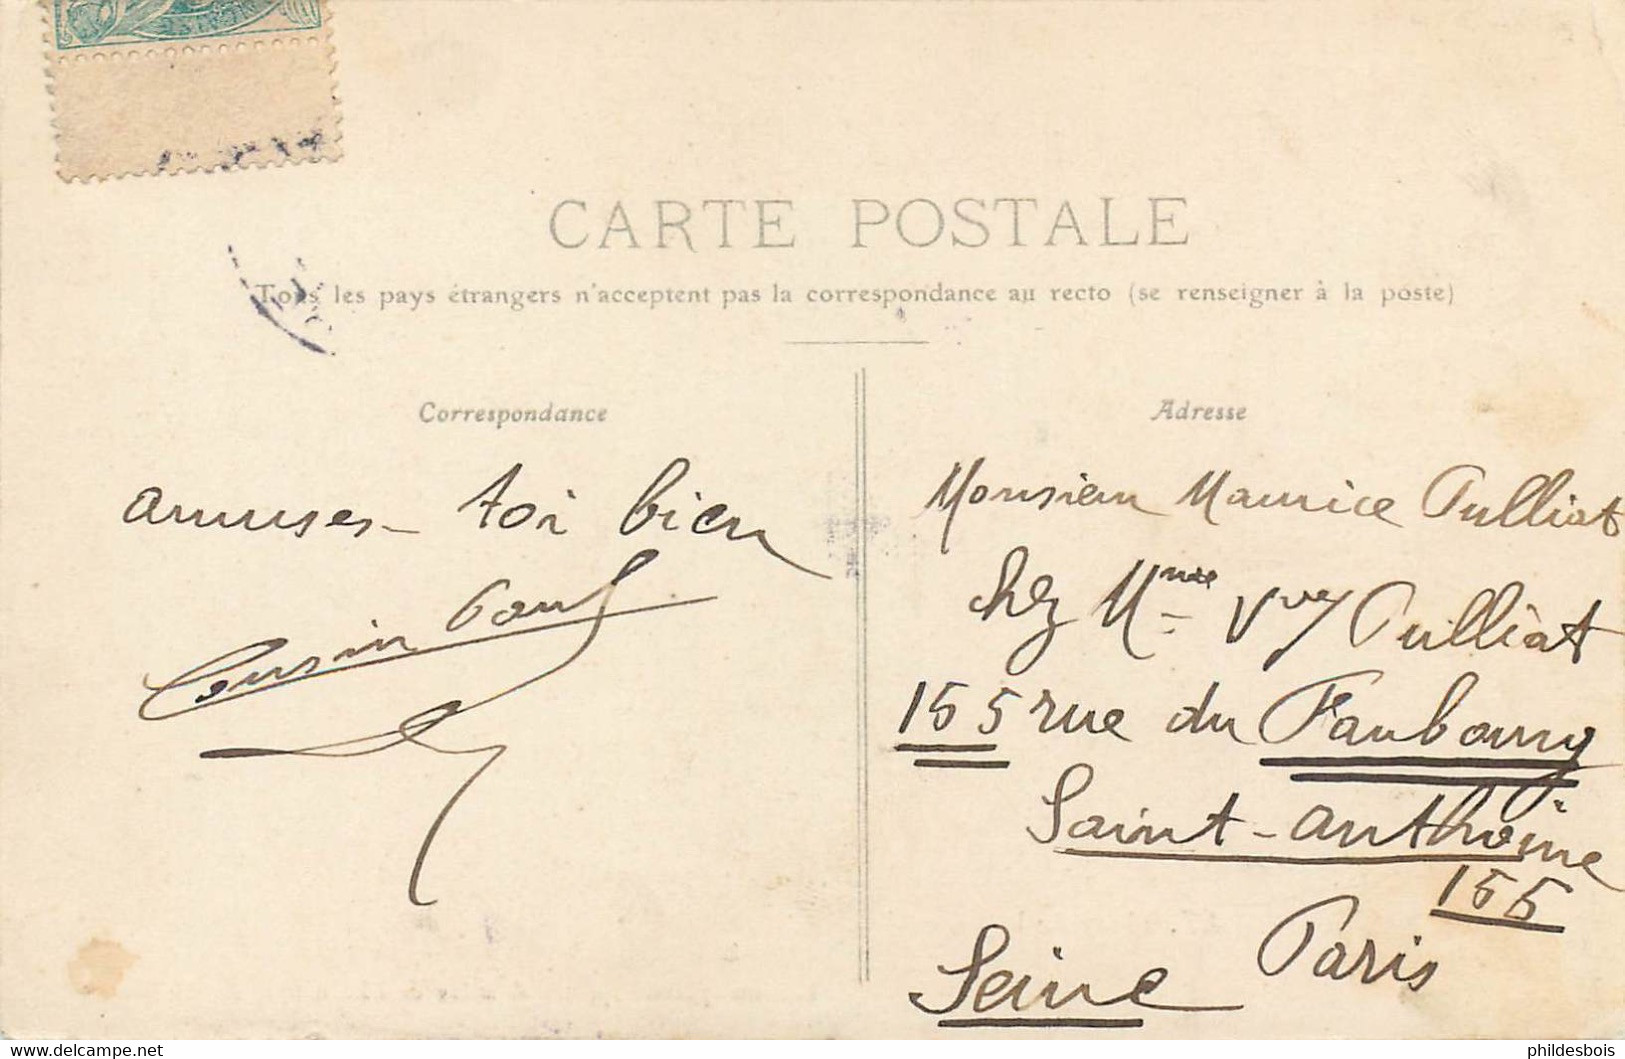 CARTE POSTALE
Tous les pays étrangers n'acceptent pas la correspondance au recto (se renseigner à la poste)
Correspondance
amuses-toi bien
Cousin Paul
Adresse
Monsieur Maurice Pulliat
chez Mme Vve Pulliat
155 rue du Faubourg
Saint-Anthoine
155
Paris
Seine
https://www.delcampe.net
phildesbois